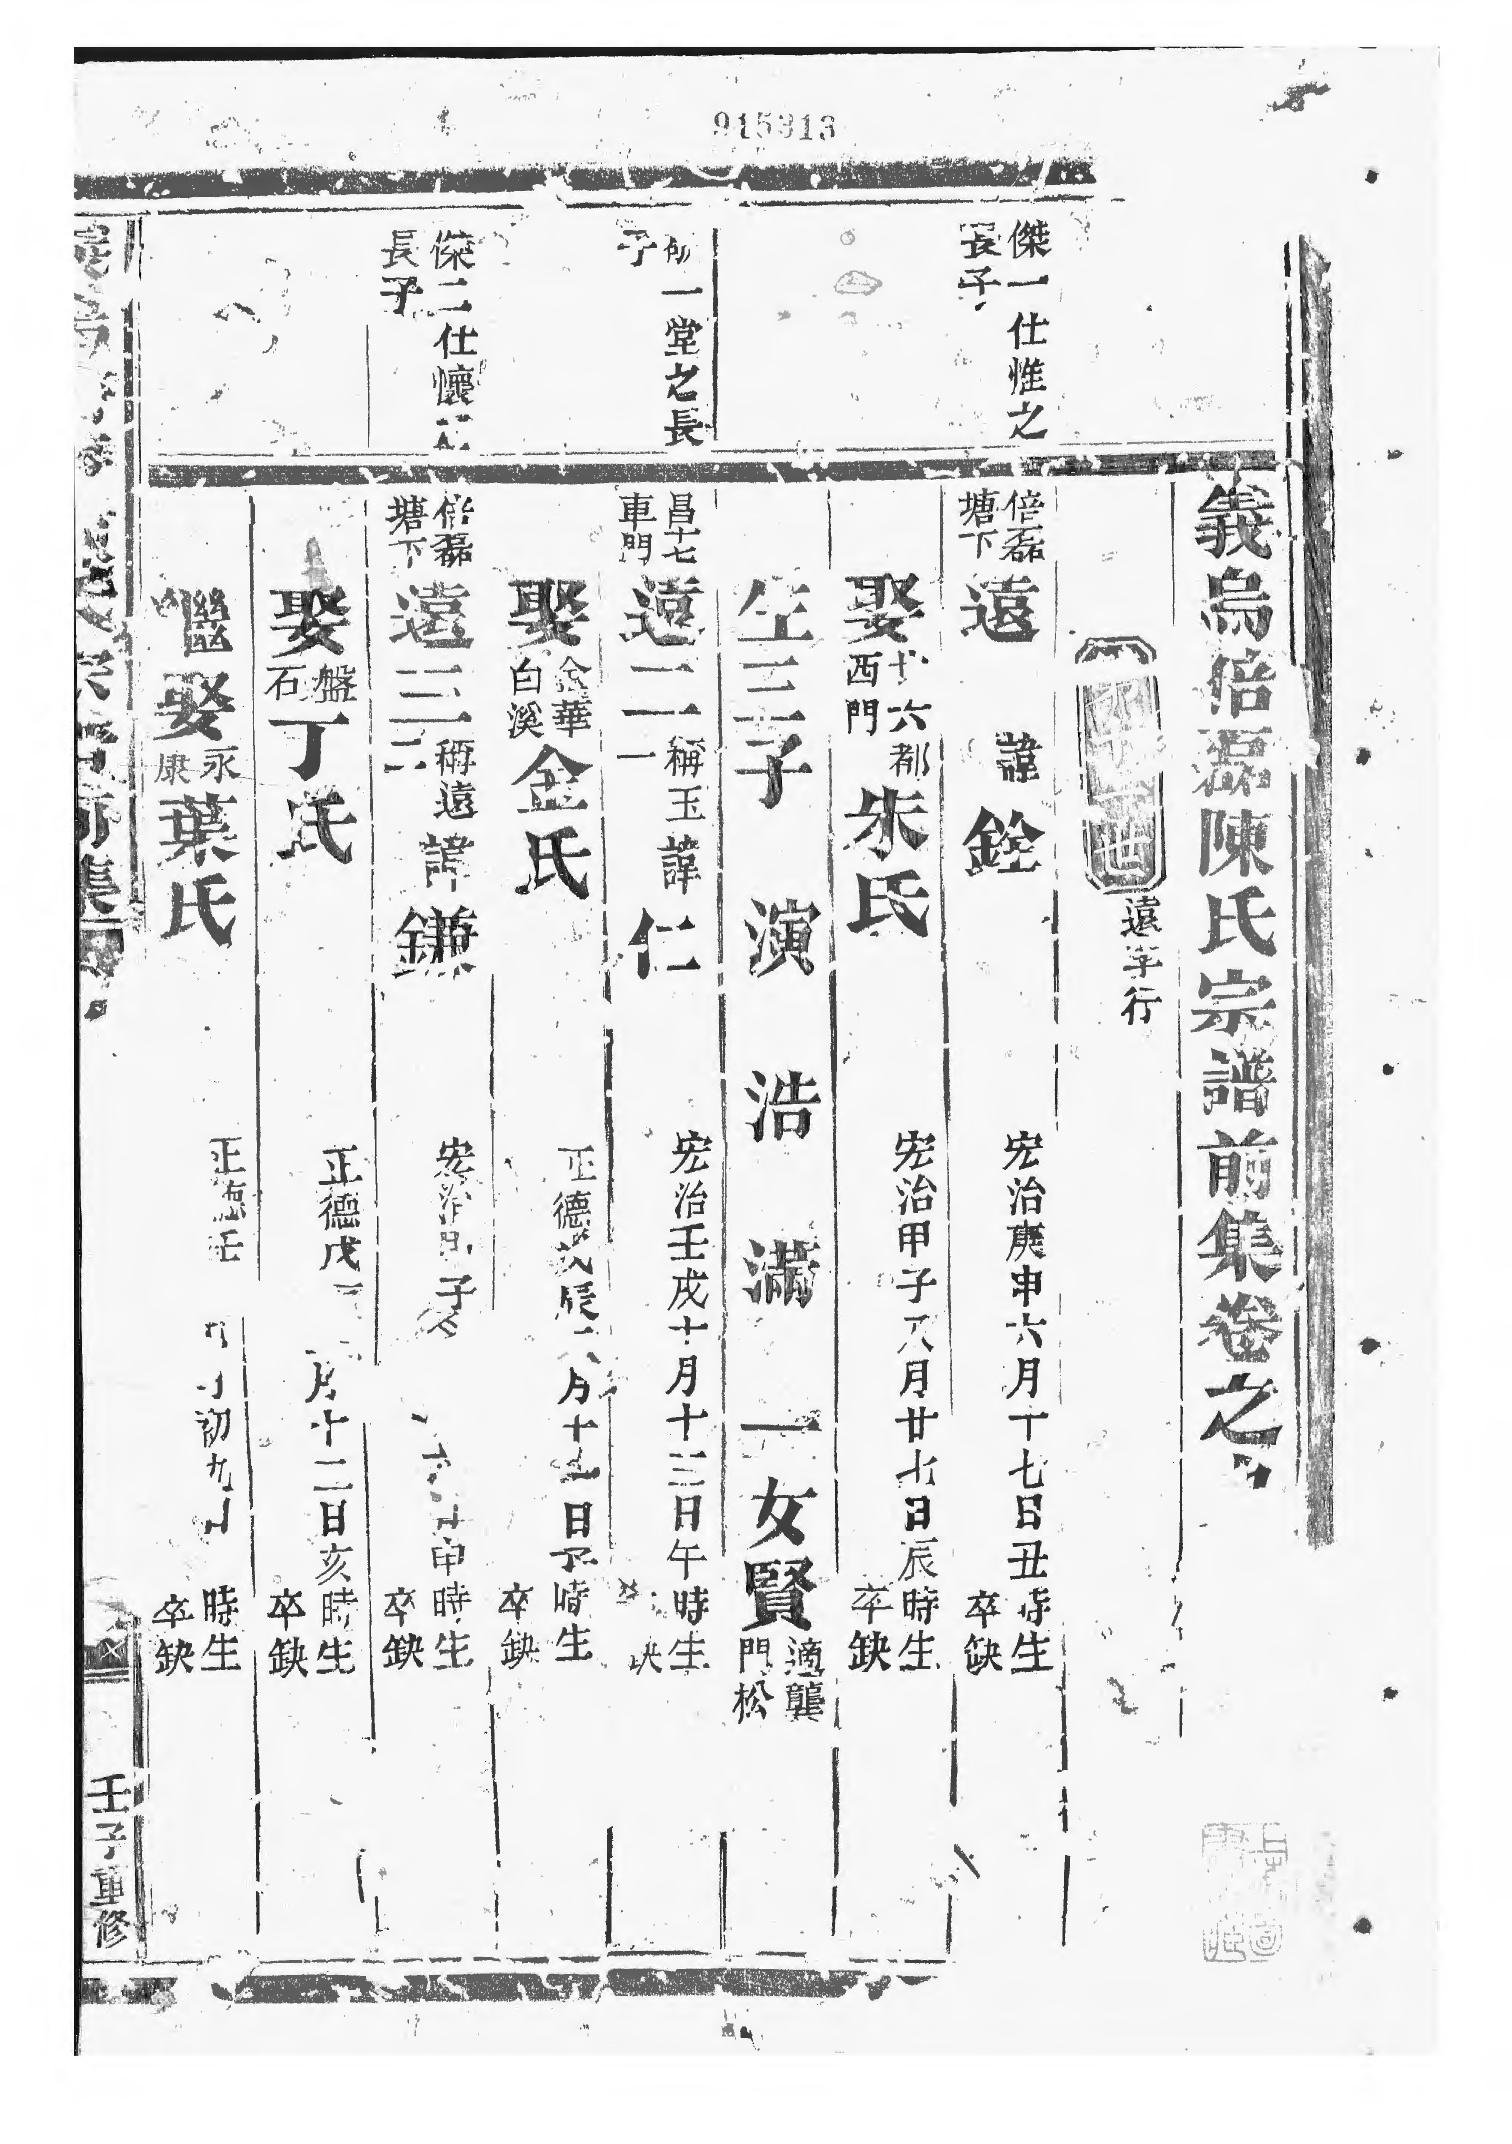 915313
義烏倍磊陳氏宗譜前集卷之
世
遠字行
傑一仕惟之
長子
倍磊
塘下
遠
諱銓
宏治庚申六月十七日丑時生
卒缺
娶
十六都
西門
朱氏
宏治甲子八月廿七日辰時生
卒缺
生三子 演 浩 滿 一女賢
適龔
門松
一堂之長
子
昌七
車門
遠二
一
稱玉諱
仁
宏治壬戌十月十三日午時生
缺
娶
金華
白溪
金氏
正德戊辰六月十日子時生
卒缺
傑二仕懷
長子
倍磊
塘下
遠三
二
稱遠諱
鎌
宏治 子
申時生
卒缺
娶
盤
石
丁氏
正德戊
月十二日亥時生
卒缺
繼娶
永
康
葉氏
正德壬
初九日
時生
卒缺
集
壬子重修